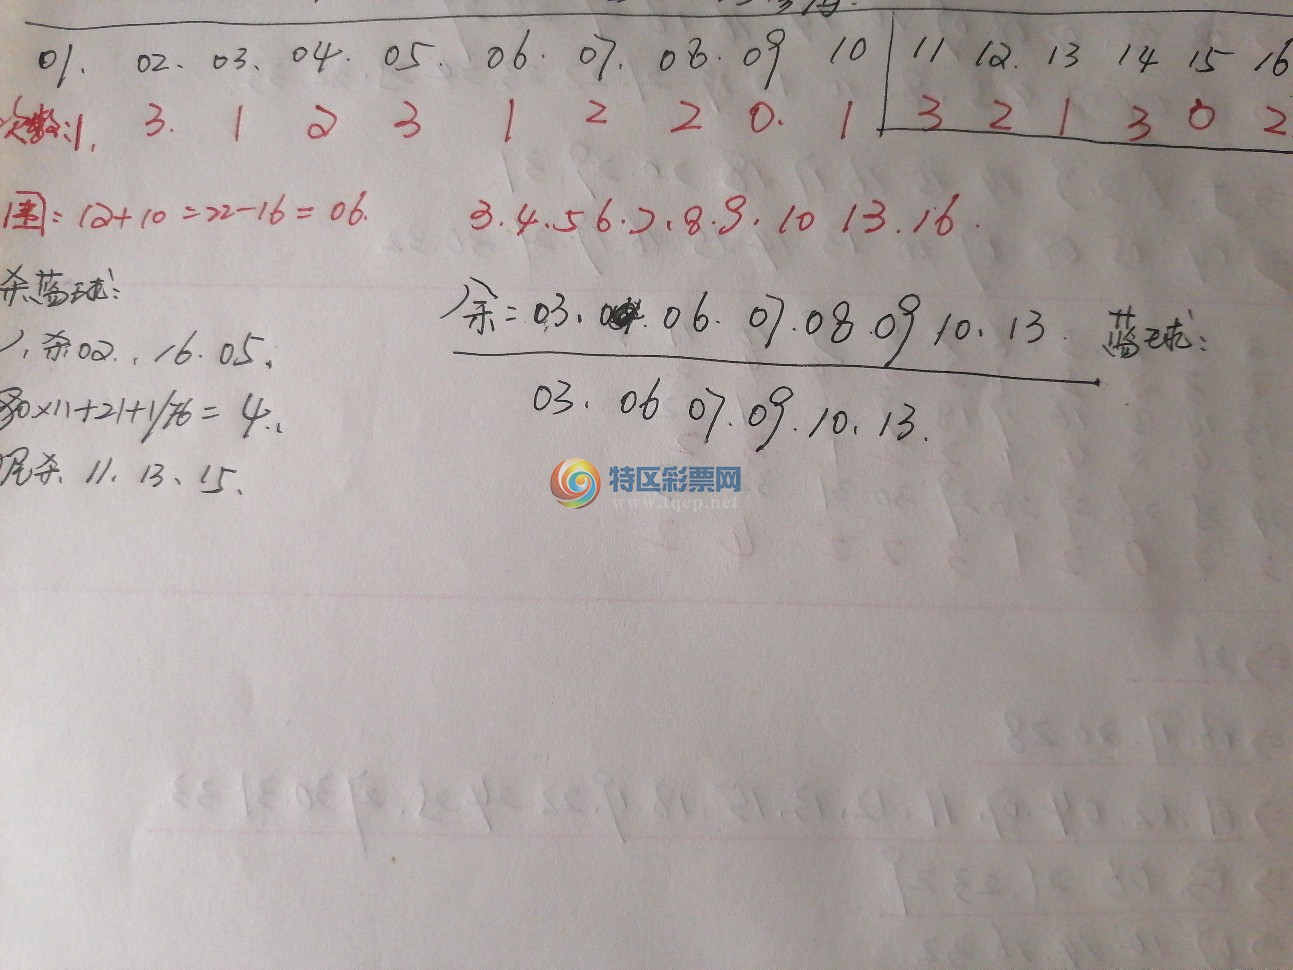 01. 02. 03. 04. 05. 06. 07. 08. 09 10 11 12. 13 14 15 16
次数:1. 3. 1 2 3 1 2 2 0. 1 3 2 1 3 0 2
围:12+10=22-16=06. 3.4.5 6.7.8.9.10 13.16.
杀蓝球:
余=03. 06. 07.08.09 10. 13. 蓝球:
1、杀02., 16.05.
03. 06 07.09.10. 13.
0×11+21+1/76=4.
尾杀. 11. 13、15、
特区彩票网
www.tqcp.net